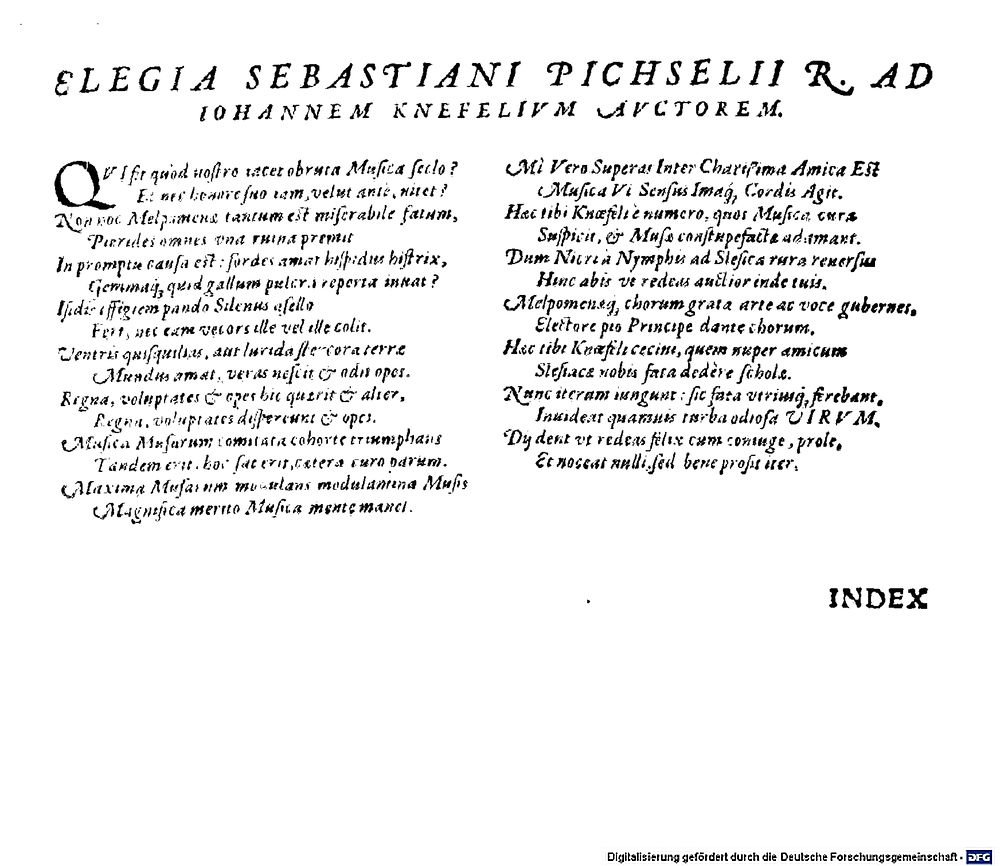 ELEGIA SEBASTIANI PICHSELII R. AD
IOHANNEM KNEFELIVM AVCTOREM.
QVI fit quòd nostro iacet obruta Musica seclo?
Et nec honore suo iam, velut antè, nitet?
Non hoc Melpomenæ tantum est miserabile fatum,
Pierides omnes vna ruina premit
In promptu causa est: sordes amat hispidus histrix,
Gemmaq́, quid gallum pulcra reperta iuuat?
Isidis effigiem pando Silenus asello
Fert, nec eam vecors ille vel ille colit.
Ventris quisquilias, aut lurida stercora terræ
Mundus amat, veras nescit & odit opes.
Regna, voluptates & opes hic quærit & alter,
Regna, voluptates dispereunt & opes.
Musica Musarum comitata cohorte triumphans
Tandem erit. hoc sat erit, cætera curo parum.
Maxima Musarum modulamina Musis
Magnifica merito Musica mente manet.
Mi Vero Superas Inter Charissima Amica Est
Musica Vi Sensus Imaq́, Cordis Agit.
Hæc tibi Knœfeli è numero, quos Musica cura
Suspicit, & Musæ constupefactæ adamant.
Dum Nicri à Nymphis ad Slesica rura reuersus
Hinc abis vt redeas auctior inde tuis.
Melpomeneq́, chorum grata arte ac voce gubernes,
Electore pio Principe dante chorum.
Hæc tibi Knœfeli cecini, quem nuper amicum
Slesiacæ nobis fata dedêre scholæ.
Nunc iterum iungunt: sic fata vtriusq́, ferebant,
Inuideat quamuis turba odiosa VIRVM.
Dij dent vt redeas fêlix cum coniuge, prole,
Et noceat nulli, sed bene prosit iter.
INDEX
Digitalisierung gefördert durch die Deutsche Forschungsgemeinschaft - DFG